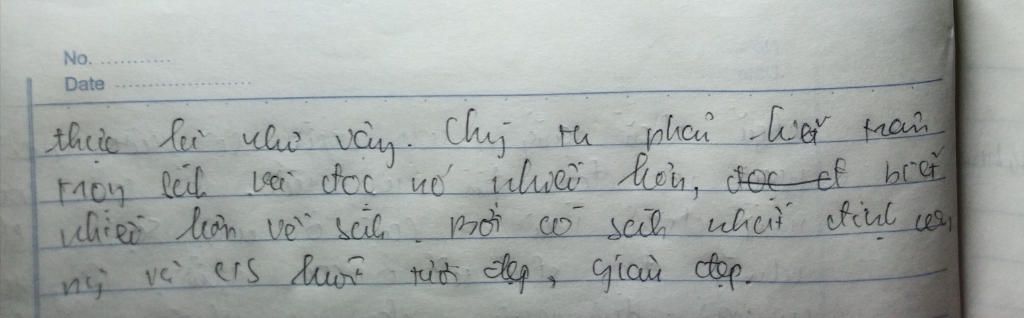 No. ............
Date ........................
thức lại như vậy. Chúng ta phải biết trân
trọng sách và đọc nó nhiều hơn, đọc biết
nhiều hơn về sách. Bởi có sách nhất định con
và c/s luôn tươi đẹp, giàu đẹp.